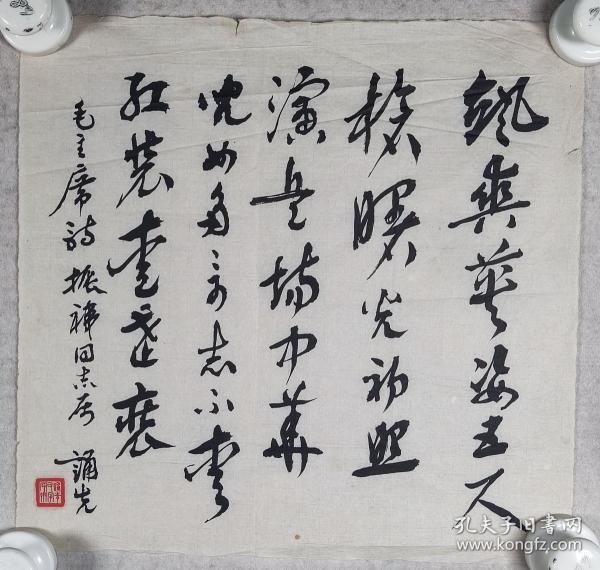 飒爽英姿五尺
枪曙光初照
演兵场中华
儿女多奇志不爱
红装爱武装
毛主席诗 振 同志属 诵先
孔夫子旧书网
www.kongfz.com